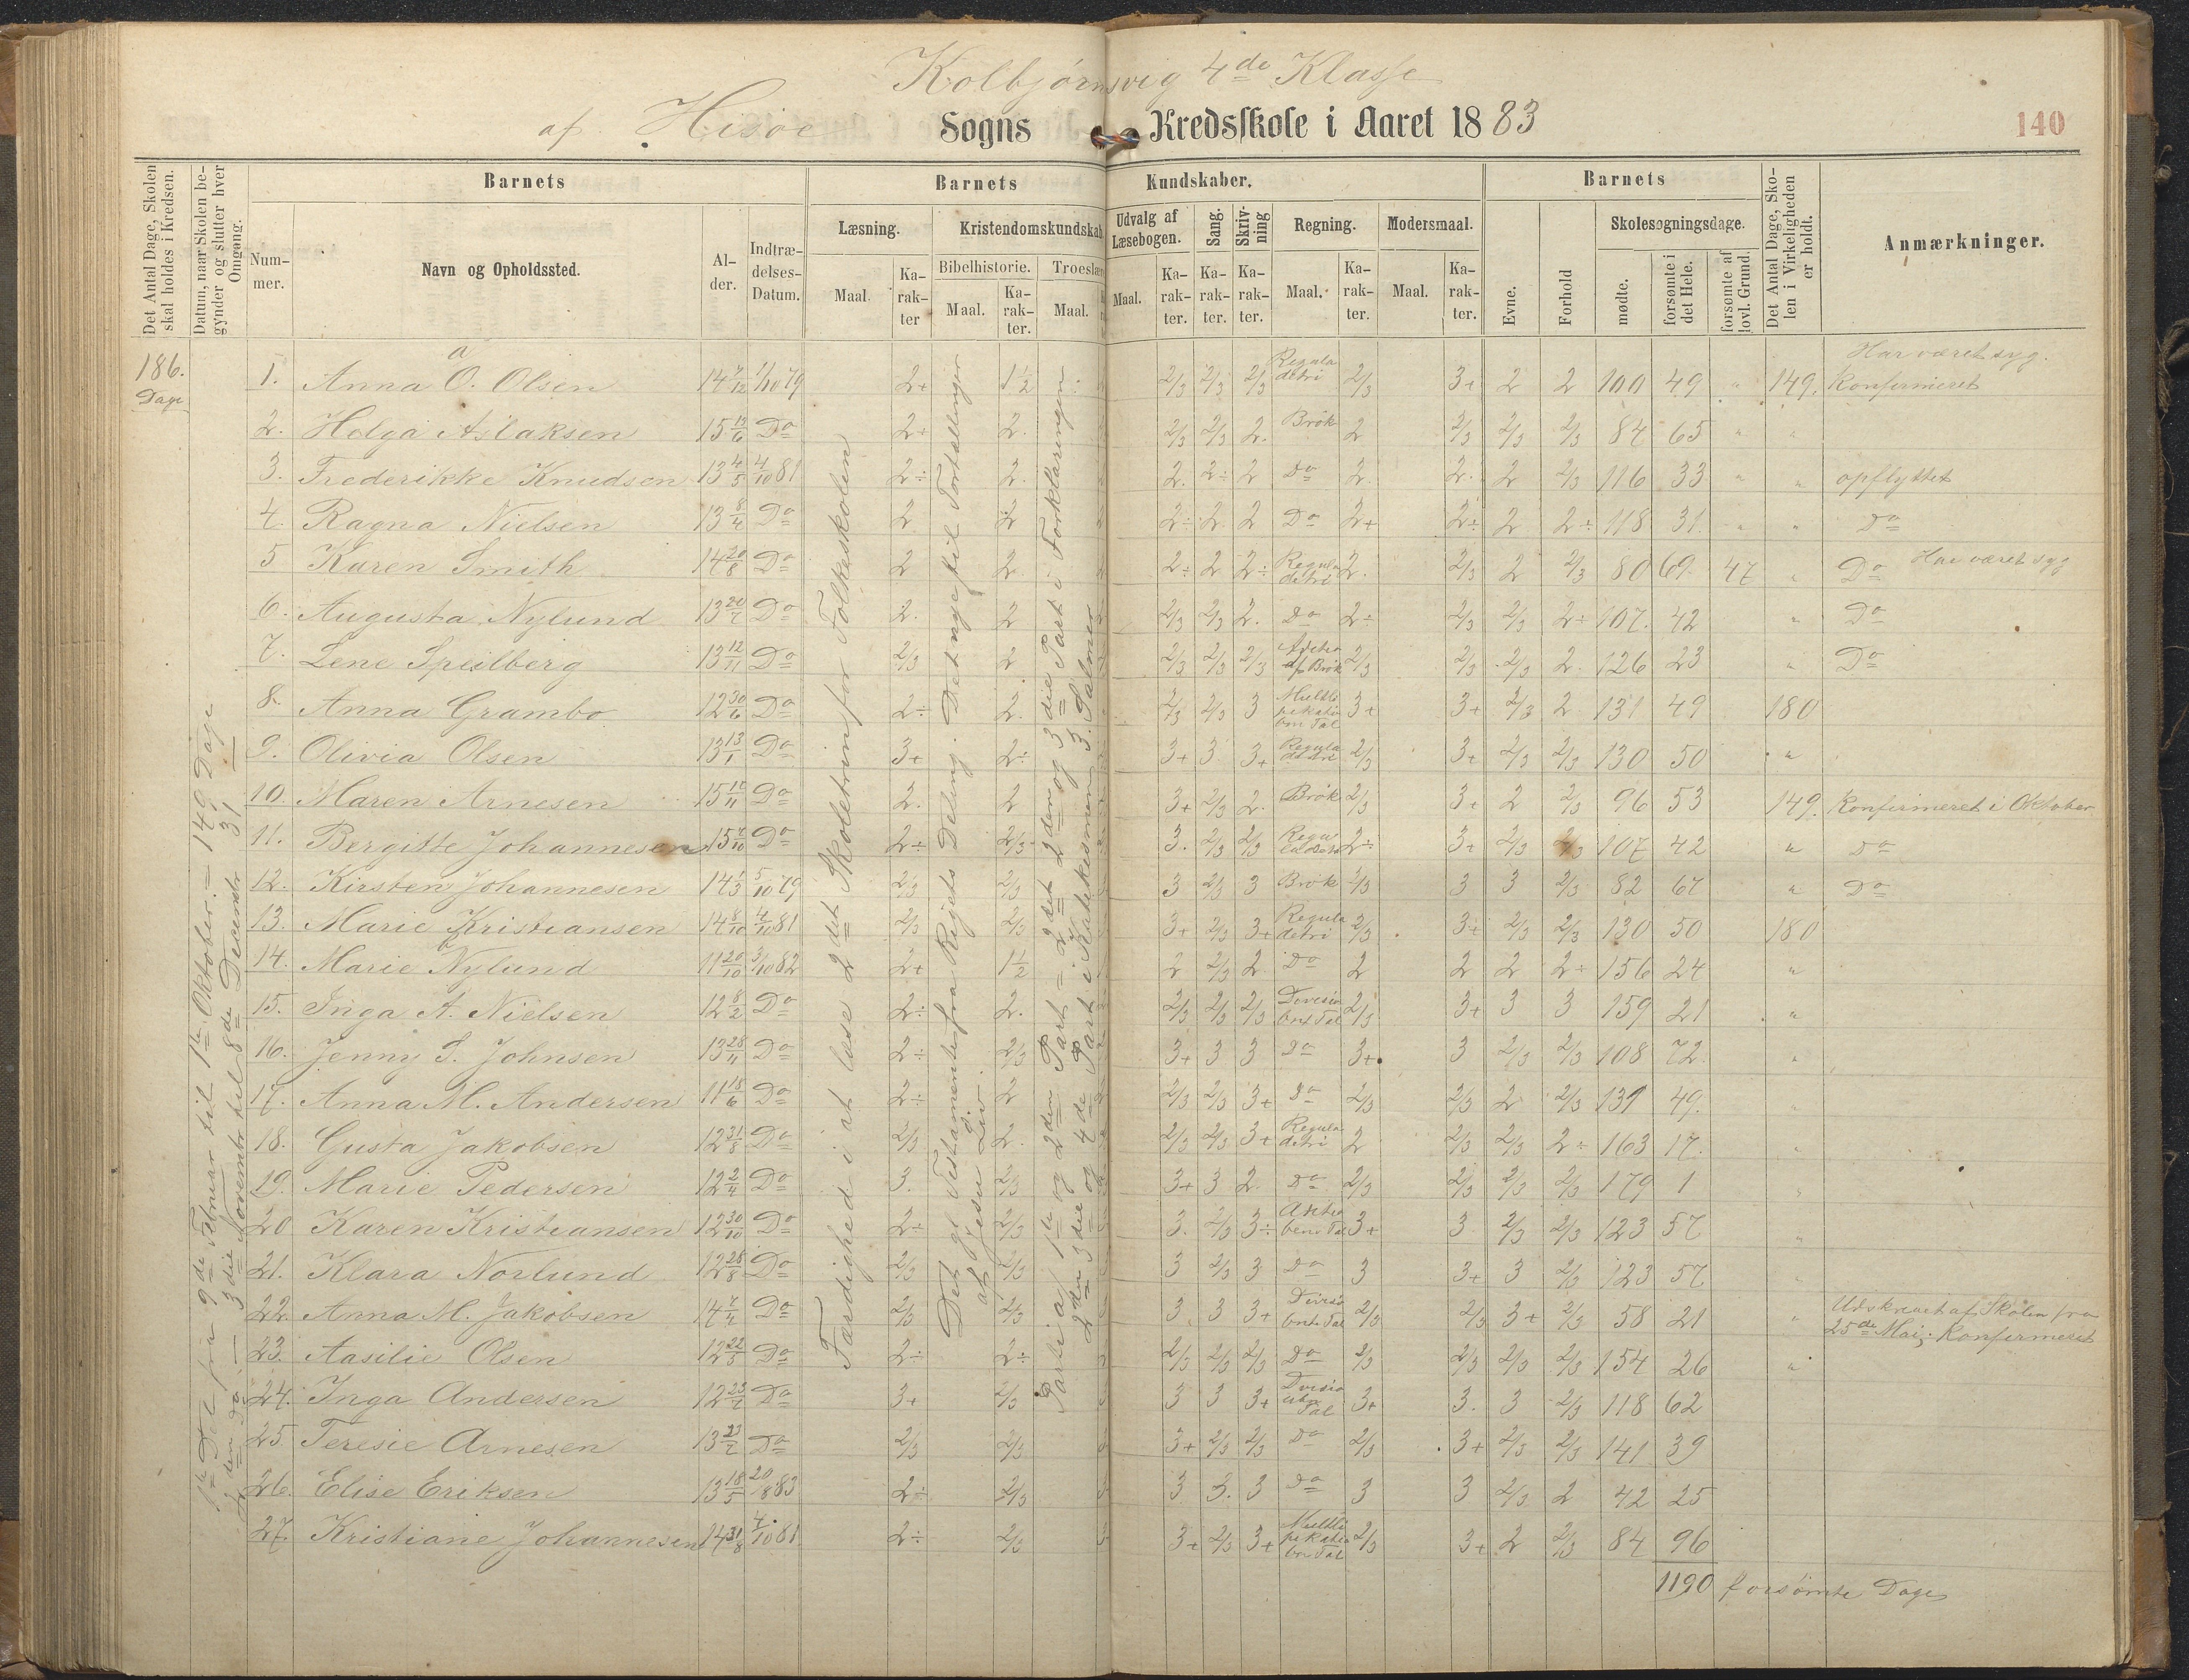 Kolbjørnsvig 4de Klasse
af Hisøe Sogns Kredsskole i Aaret 1883
140
Det Antal Dage, Skolen skal holdes i Kredsen.
Datum, naar Skolen begynder og slutter hver Omgang.
Barnets
Num-mer.
Navn og Opholdssted.
Al-der.
Indtræ-delses-Datum.
Barnets Kundskaber.
Læsning.
Maal.
Ka-rak-ter
Kristendomskundskab
Bibelhistorie.
Maal.
Ka-rak-ter.
Troeslære
Maal.
Udvalg af Læsebogen.
Maal.
Ka-rak-ter.
Sang.
Ka-rak-ter.
Skriv-ning
Ka-rak-ter.
Regning.
Maal.
Ka-rak-ter.
Modersmaal.
Maal.
Ka-rak-ter.
Barnets
Evne.
Forhold
Skolesøgningsdage.
mødte.
forsømte i det Hele.
forsømte af lovl. Grund.
Det Antal Dage, Skolen i Virkeligheden er holdt.
Anmærkninger.
186. Dage
1ste Del fra 9de Februar til 1ste Oktober. — 149 Dage
2den Do — 3die Novembr til 8de Decembr 31
Færdighed i at læse 2det Skoletrin for Folkeskolen
Det gl. Testamente fra Rigets Deling. Det nye til Fortællinger
af Jesu Liv.
Parti a, 1ste og 2den Part = 2det 2den og 3die Part i Forklaringen
2den 3die og 4de Part i Katekismen 3. Salmer
1. Anna O. Olsen 14 7/12 1/10 79 2+ 1½ 2/3 2/3 2/3 Regula detri 2/3 3+ 2 2 100 49 " 149. Har været syg. Konfirmeret
2. Helga Aslaksen 15 13/6 Do 2+ 2. 2/3 2/3 2. Brøk 2 2/3 2/3 2/3 84 65 " "
3. Frederikke Knudsen 13 4/5 4/10 81 2÷ 2. 2. 2÷ 2 Do 2. 2. 2 2/3 116 33 " " opflyttet
4. Ragna Nielsen 13 8/4 Do 2 2 2÷ 2 2 Do 2+ 2÷ 2 2÷ 118 31. " " Do
5 Karen Smith 14 20/8 Do 2 2 2÷ 2 2÷ Regula detri 2. 2/3 2 2/3 80 69. 47 " Do Har været syg
6. Augusta Nylund 13 20/7 Do 2. 2 2/3 2/3 2. Do 2÷ 2/3 2/3 2÷ 107. 42 " Do
7. Lene Speilberg 13 12/11 Do 2/3 2 2/3 2/3 2/3 af Brøk 2/3 2/3 2/3 2. 126 23 " Do
8. Anna Grambo 12 30/6 Do 2÷ 2. 2/3 2/3 3 3+ 3+ 2/3 2 131 49 180
9. Olivia Olsen 13 13/1 Do 3+ 2÷ 3+ 3 3+ Regula detri 2/3 3+ 2/3 2/3 130 50 "
10. Maren Arnesen 15 Do 2. 2 3+ 2/3 2. Brøk 2/3 3+ 2 2/3 96 53 149. Konfirmeret i Oktober
11. Bergitte Johannesen 15 7/10 Do 2÷ 2/3 3. 2/3 2/3 2÷ 3+ 2/3 2/3 107 42 " Do
12. Kirsten Johannesen 14 1/3 5/10 79 2/3 2/3 3 2/3 3 Brøk 2/3 3 3 2/3 82 67 " Do
13. Marie Kristiansen 14 8/10 4/10 81 2/3 2/3 3+ 2/3 3+ Regula detri 2/3 3+ 2/3 2/3 130 50 180
14. Marie Nylund 11 20/10 3/10 82 2+ 1½ 2 2/3 2 Do 2 2 2 2÷ 156 24 "
15. Inga A. Nielsen 12 8/2 Do 2÷ 2. 2/3 2/3 2/3 2/3 3+ 3 3 159 21 "
16. Jenny S. Johnsen 13 28/11 Do 2÷ 2/3 3+ 3 3 Do 3+ 3 2/3 2/3 108 72. "
17. Anna M. Andersen 11 18/6 Do 2÷ 2 2/3 2/3 3+ Do 2/3 2/3 2 2/3 131 49. "
18. Gusta Jakobsen 12 31/8 Do 2/3 2. 2/3 2/3 3+ Regula detri 2 2/3 2/3 2÷ 163 17. "
19. Marie Pedersen 12 2/4 Do 3. 2/3 3+ 3 2. Do 2/3 2/3 2/3 2/3 179 1 "
20 Karen Kristiansen 12 30/10 Do 2÷ 2/3 3. 2/3 3÷ 3+ 3 2/3 2/3 123 57 "
21. Klara Norlund 12 28/8 Do 2/3 2/3 3 2/3 3 Do 3 3+ 3 2/3 123 57. "
22. Anna M. Jakobsen 14 7/4 Do 2/3 2/3 3 3 3+ 2/3 2/3 3+ 2/3 58 21 " Udskrevet af Skolen fra 25de Mai; Konfirmeret
23. Aasilie Olsen 12 22/5 Do 2÷ 2÷ 2/3 2/3 2/3 Do 2/3 2/3 2/3 2/3 154 26 "
24. Inga Andersen 12 23/7 Do 3+ 2/3 3 3 3+ 3+ 3. 3 2/3 118 62
25. Teresie Arnesen 13 Do 2/3 2/3 3+ 2/3 2/3 Do 2/3 3+ 2/3 2/3 141 39
26. Elise Eriksen 13 18/5 20/8 83 2÷ 2/3 3 3. 3 Do 3 3 2/3 2 42 25
27. Kristiane Johannesen 14 31/8 4/10 81. 2÷ 2/3 3+ 2/3 3+ 2/3 3+ 2 2/3 84 96
1190 forsømte Dage